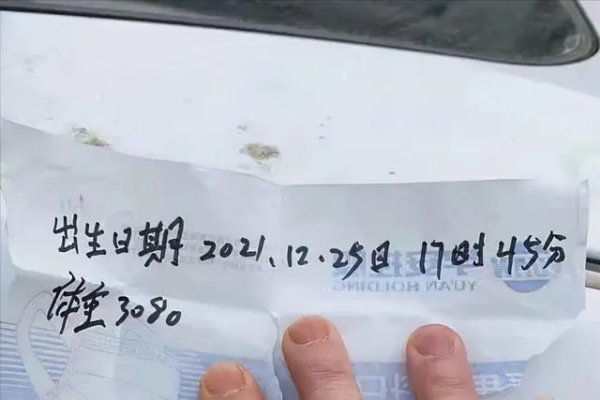 出生日期 2021.12.25日 17时45分
体重3080
YU'AN HOLDING